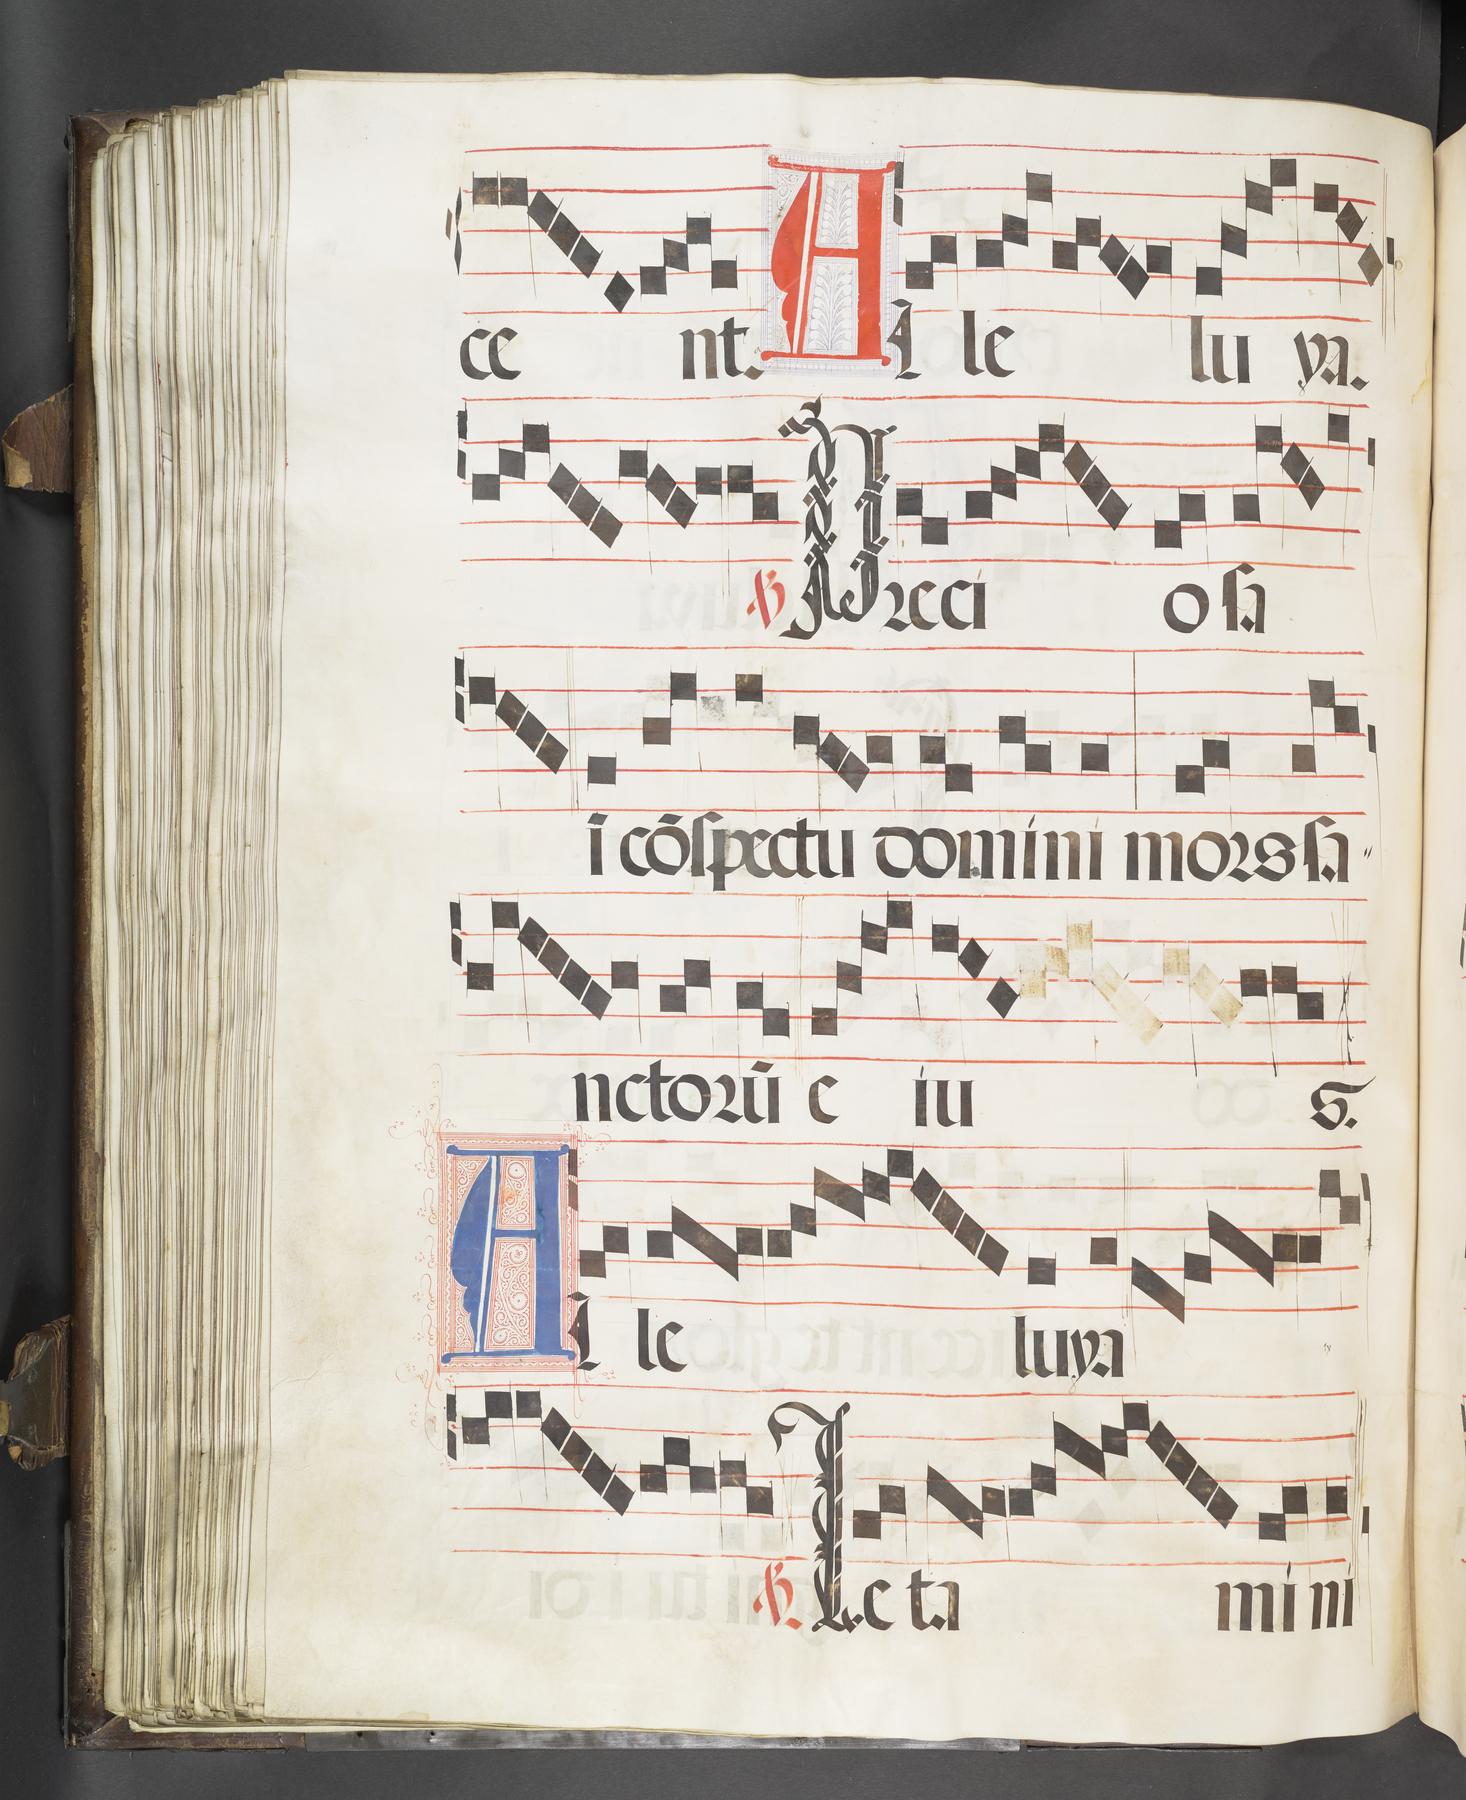 ce nt. Al le lu ya.
℣ Preci o sa
ī cōspectu domini mors sa
nctorū e iu s.
Al le luya
℣ Le ta mini